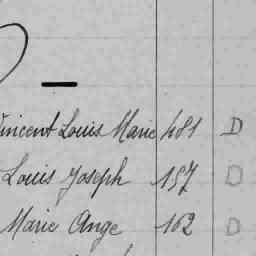 Vincent Louis Marie 481 D
Louis Joseph 157 D
Marie Ange 102 D